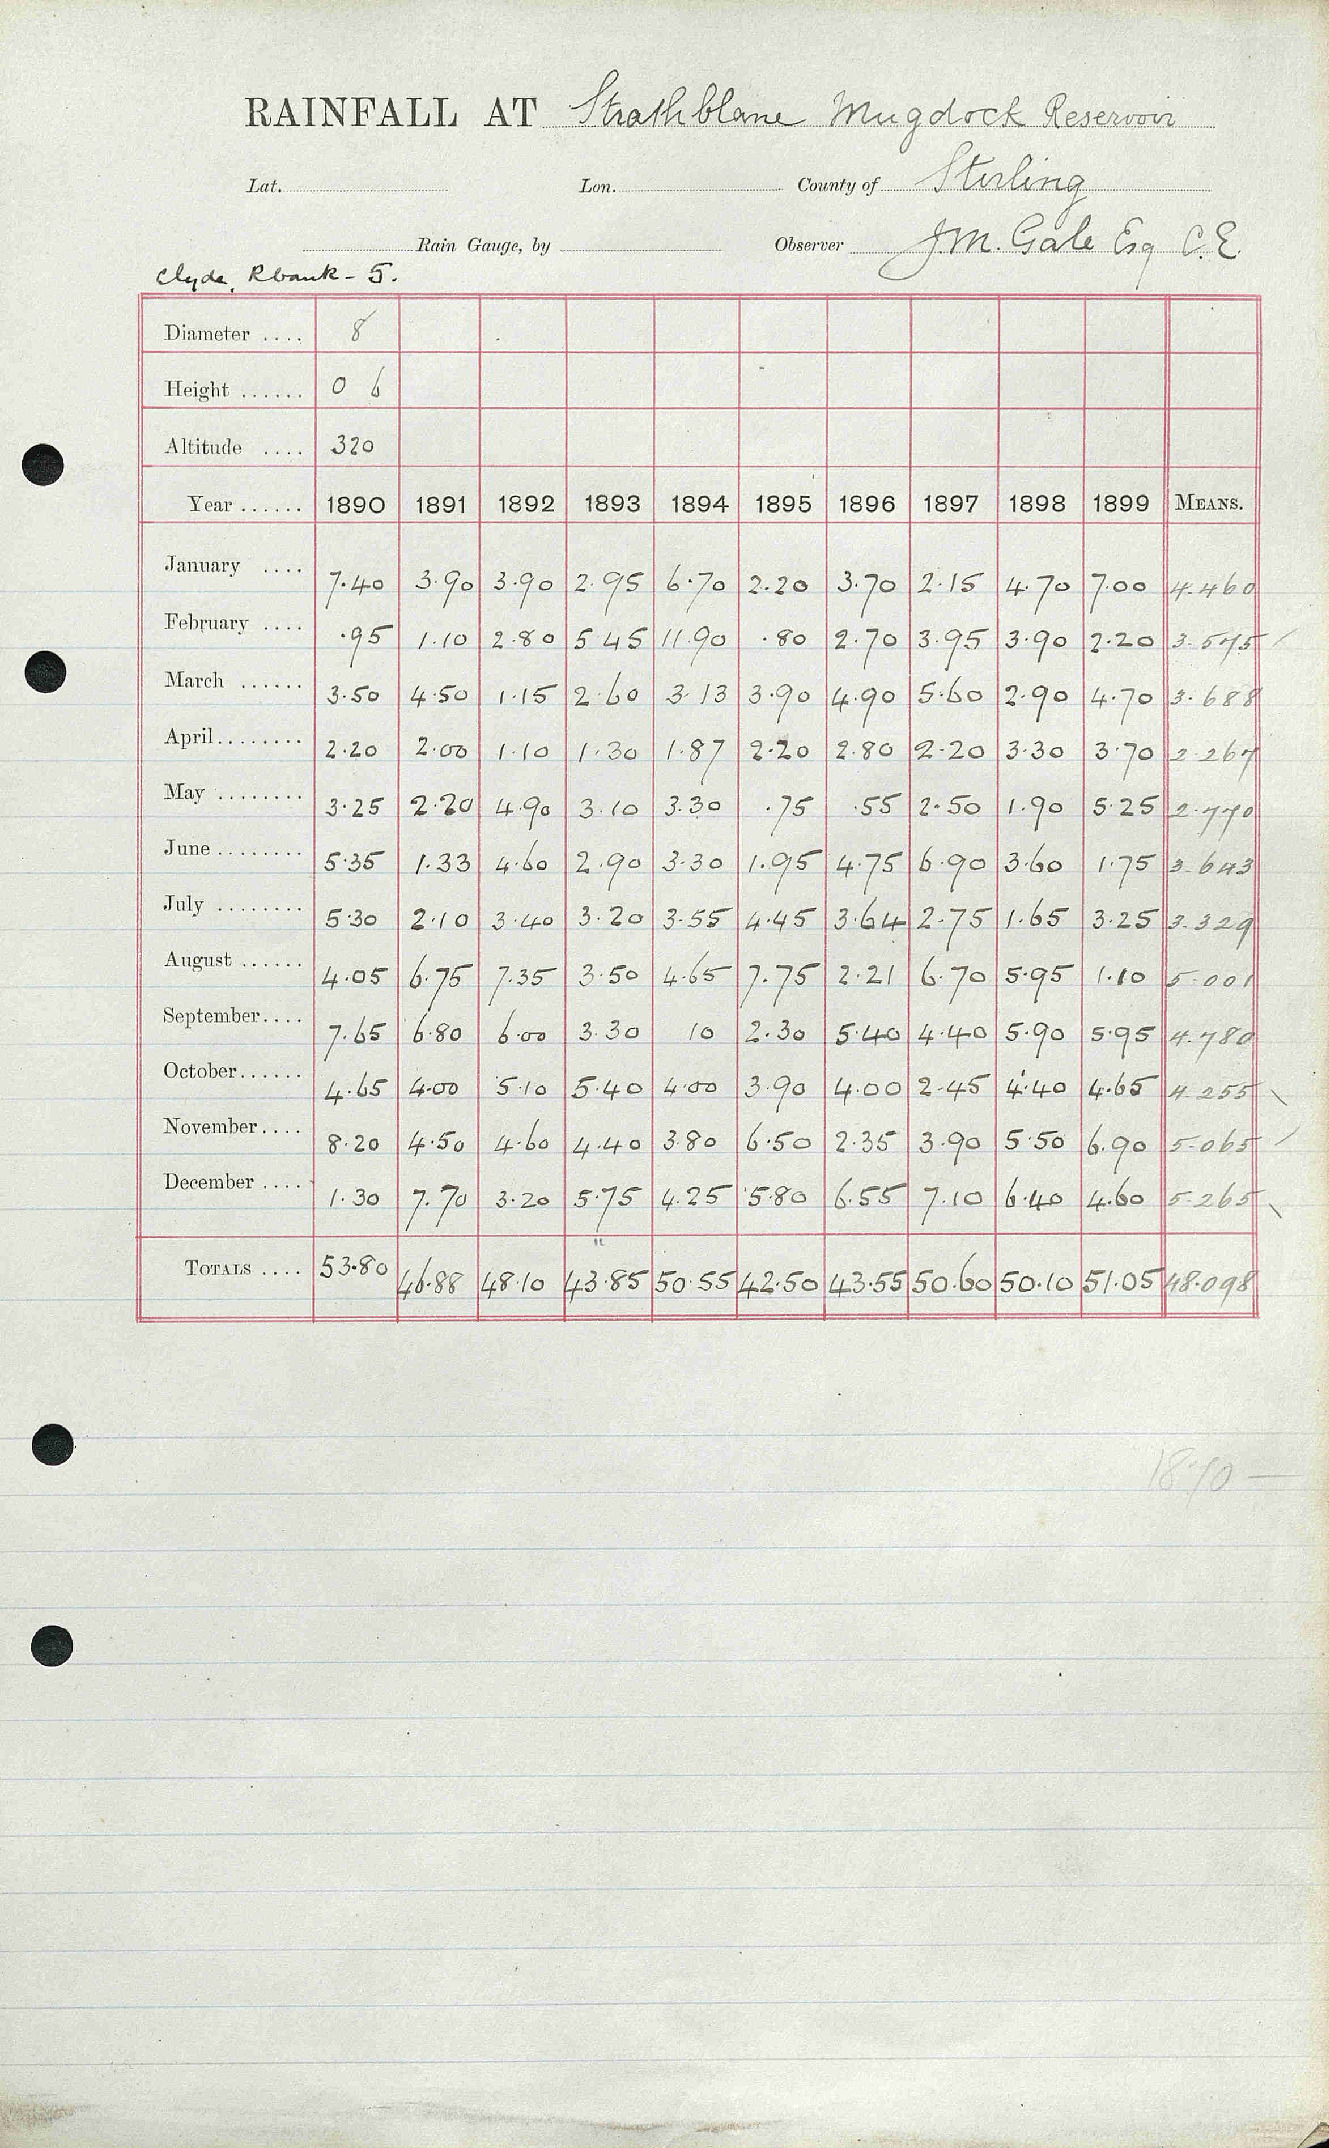 RAINFALL AT Strathblane Mugdock Reservoir
Lat. Lon. County of Stirling
Rain Gauge, by Observer J.M. Gale Esq C.E.
Clyde, Rbank - 5.
Diameter .... 8
Height ...... 0 6
Altitude .... 320
Year ...... 1890 1891 1892 1893 1894 1895 1896 1897 1898 1899 MEANS.
January .... 7.40 3.90 3.90 2.95 6.70 2.20 3.70 2.15 4.70 7.00 4.460
February .... .95 1.10 2.80 5 45 11.90 .80 2.70 3.95 3.90 2.20 3.575
March ...... 3.50 4.50 1.15 2.60 3.13 3.90 4.90 5.60 2.90 4.70 3.688
April........ 2.20 2.00 1.10 1.30 1.87 2.20 2.80 2.20 3.30 3.70 2.267
May ........ 3.25 2.20 4.90 3.10 3.30 .75 .55 2.50 1.90 5.25 2.770
June ........ 5.35 1.33 4.60 2.90 3.30 1.95 4.75 6.90 3.60 1.75 3.643
July ........ 5.30 2.10 3.40 3.20 3.55 4.45 3.64 2.75 1.65 3.25 3.329
August ...... 4.05 6.75 7.35 3.50 4.65 7.75 2.21 6.70 5.95 1.10 5.001
September.... 7.65 6.80 6.00 3.30 10 2.30 5.40 4.40 5.90 5.95 4.780
October...... 4.65 4.00 5.10 5.40 4.00 3.90 4.00 2.45 4.40 4.65 4.255
November.... 8.20 4.50 4.60 4.40 3.80 6.50 2.35 3.90 5.50 6.90 5.065
December .... 1.30 7.70 3.20 5.75 4.25 5.80 6.55 7.10 6.40 4.60 5.265
TOTALS .... 53.80 46.88 48.10 43.85 50.55 42.50 43.55 50.60 50.10 51.05 48.098
1870 —